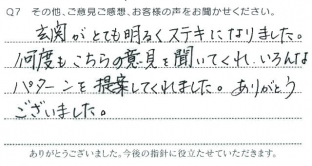 Q7 その他、ご意見ご感想、お客様の声をお聞かせください。
玄関がとても明るくステキになりました。
何度もこちらの意見を聞いてくれ、いろんな
パターンを提案してくれました。ありがとう
ございました。
ありがとうございました。今後の指針に役立たせていただきます。